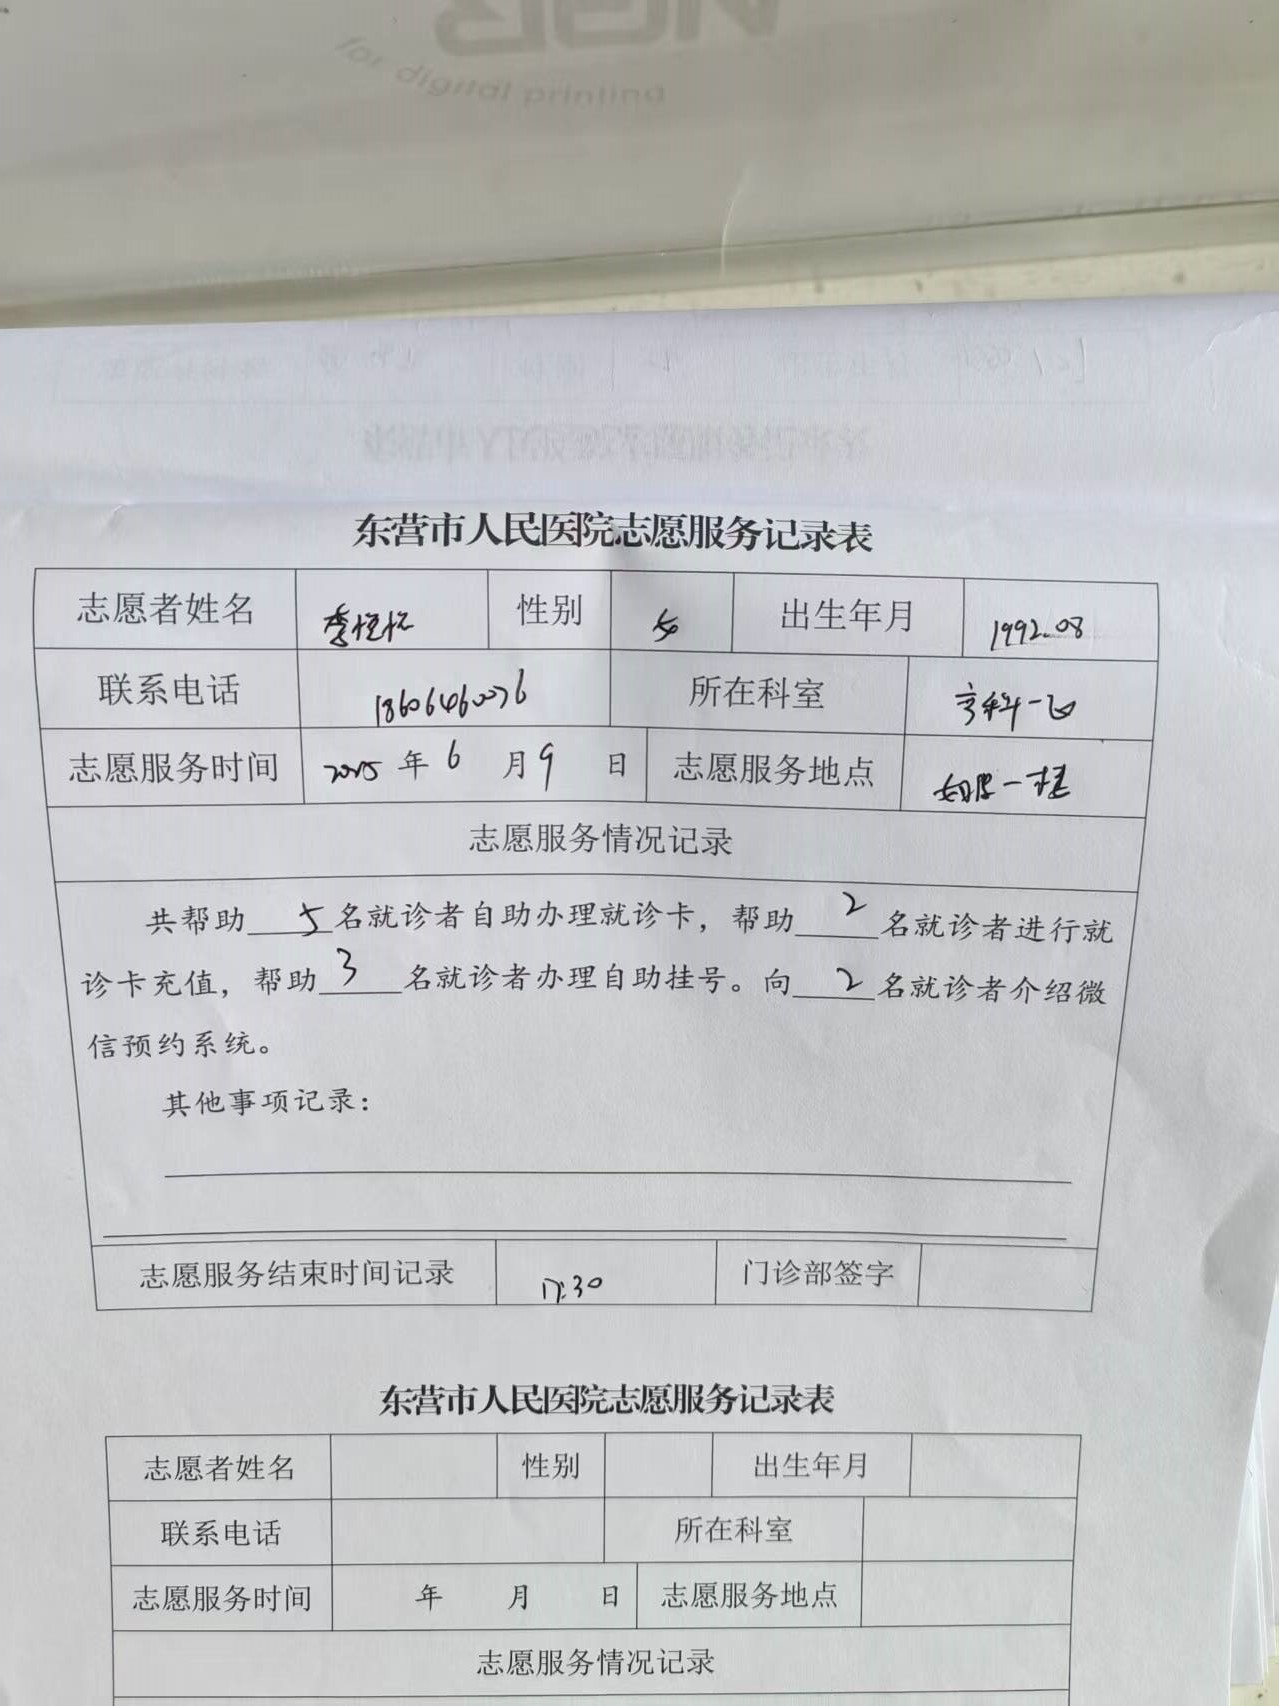 for digital printing
东营市人民医院志愿服务记录表
志愿者姓名 李 性别 女 出生年月 1992.08
联系电话 18606460076 所在科室
志愿服务时间 2025年6月9日 志愿服务地点
志愿服务情况记录
共帮助 5 名就诊者自助办理就诊卡，帮助 2 名就诊者进行就
诊卡充值，帮助 3 名就诊者办理自助挂号。向 2 名就诊者介绍微
信预约系统。
其他事项记录：
志愿服务结束时间记录 17:30 门诊部签字
东营市人民医院志愿服务记录表
志愿者姓名 性别 出生年月
联系电话 所在科室
志愿服务时间 年 月 日 志愿服务地点
志愿服务情况记录